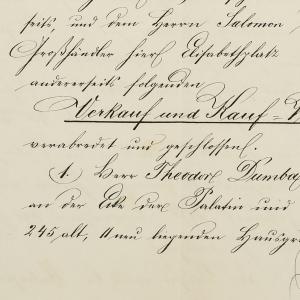 seits, und dem Herrn Salomon
Großhändler hier Elisabethplatz
andererseits folgenden
Verkauf und Kauf =
verabredet und geschlossen.
1. Herr Theodor Dumba
an der Ecke der Palatin und
245 alt, 11 neu liegenden Hausgr